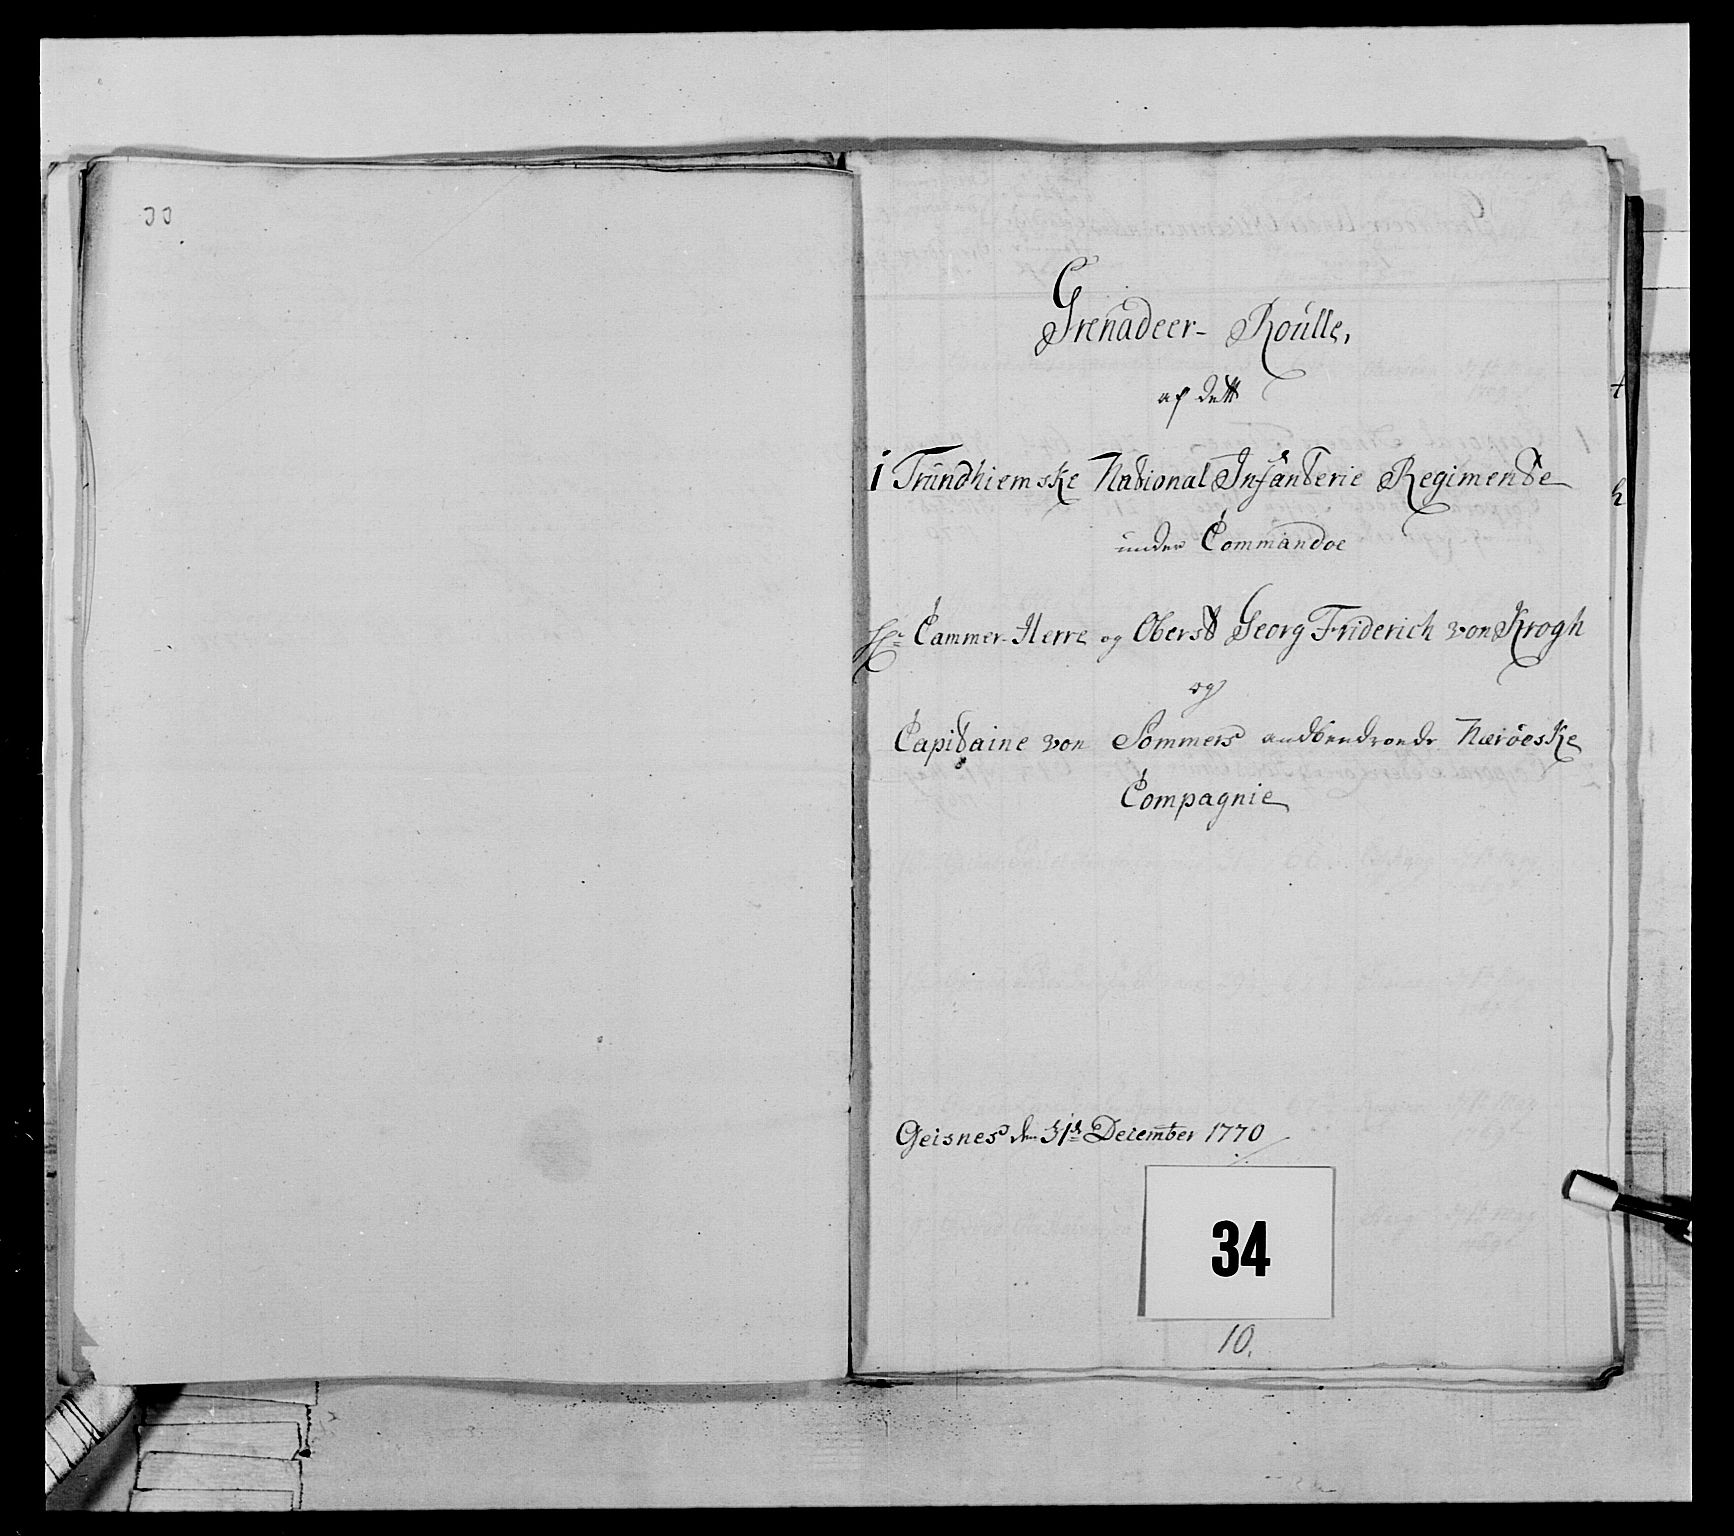 Grenadeer- Roulle,
af dett
1 Trundhiemske National Infanterie Regimente
under Commandoe
Hr Cammer-Herre og Oberst Georg Friderich von Krogh
og
Capitaine von Sommers anbetroede Nærøeske
Compagnie
Geisnes den 31te December 1770
34
10.